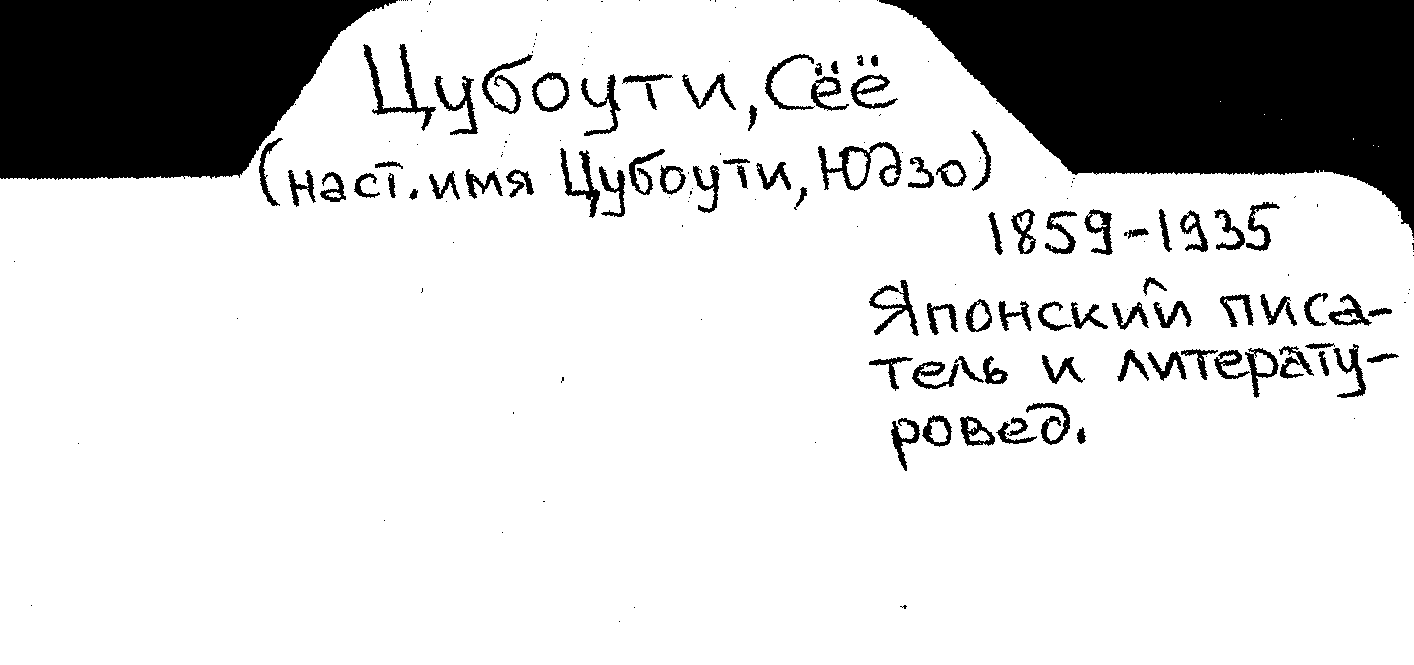 Цубоути, Сёё
(наст. имя Цубоути, Юдзо)
1859-1935
Японский писа-
тель и литерату-
ровед.